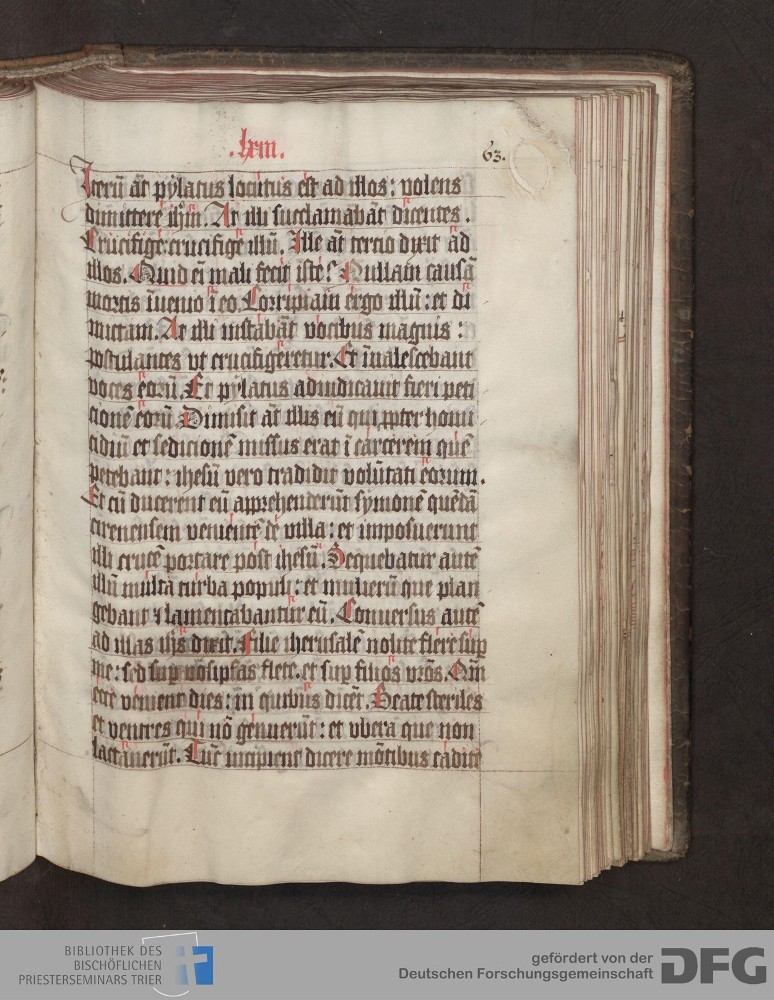 .lxiii.
63.
Iterū āt pylatus locutus est ad illos: volens
dimittere ih̄m. At illi succlamabāt dicentes.
Crucifige: crucifige illū. Ille āt tercio dixit ad
illos. Quid eī mali fecit iste? Nullam causā
mortis īuenio ī eo. Corripiam ergo illū: et di
mittam. At illi instabāt vocibus magnis:
postulantes vt crucifigeretur. Et īualescebant
voces eorū. Et pylatus adiudicauit fieri peti
cionē eorū. Dimisit āt illis eū qui ꝓpter homi
cidiū et sedicionē missus erat ī carcerem quē
petebant: ihesū vero tradidit volūtati eorum.
Et cū ducerent eū apprehenderūt symonē quēdā
cirenensem venientē de villa: et imposuerunt
illi crucē portare post ihesū. Sequebatur autē
illū multa turba populi: et mulierū que plan
gebant ⁊ lamentabantur eū. Conuersus autē
ad illas ih̄s dixit. Filie iherusalē nolite flere suꝑ
me: sed suꝑ vos ipsas flete. et suꝑ filios vr̄os. Qm̄
ecce venient dies: in quibus dicēt. Beate steriles
et ventres qui nō genuerūt: et vbera que non
lactauerūt. Tūc incipient dicere mōtibus cadite
BIBLIOTHEK DES
BISCHÖFLICHEN
PRIESTERSEMINARS TRIER
gefördert von der
Deutschen Forschungsgemeinschaft
DFG